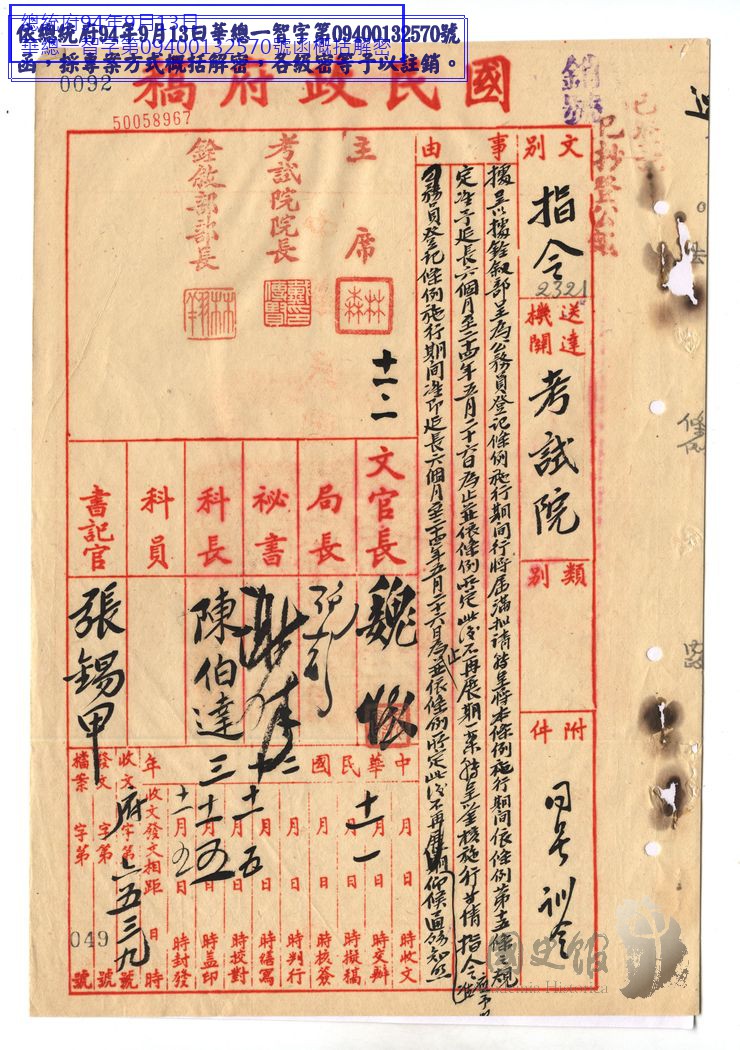 總統府94年9月13日
華總一智字第09400132570號函概括解密
依總統府94年9月13日華總一智字第09400132570號
函，採專案方式概括解密，各級密等予以註銷。
0092
50058967
國民政府稿
銷號
已抄登公報
文別
指令
2321
送達機關
考試院
類別
附件
同長訓令
事由
據呈以據銓敘部呈為公務員登記條例施行期間行將屆滿擬請轉呈將本條例施行期間依條例第十五條規
定准予延長六個月至二十四年五月二十六日為止並依條例所定此後不再展期一案轉呈鑒核施行等情指令
公務員登記條例施行期間准即延長六個月至二十四年五月二十六日為止並依條例所定此後不再展期仰候通飭知照
主席
林森
考試院院長
戴傳賢印
銓敘部部長
十一、二
文官長
魏懷
局長
秘書
科長
陳伯達
科員
書記官
張錫甲
中華民國
年
月 日 時收文
月 日 時交辦
十一 月 一 日 時擬稿
月 日 時核簽
月 日 時判行
月 日 時繕寫
月 日 時校對
月 日 時蓋印
十一月五日 時封發
收文發文相距 日 時
收文 府 字第 六五三九 號
發文 字第 號
檔案 字第 049 號
國史館
Academia Historica